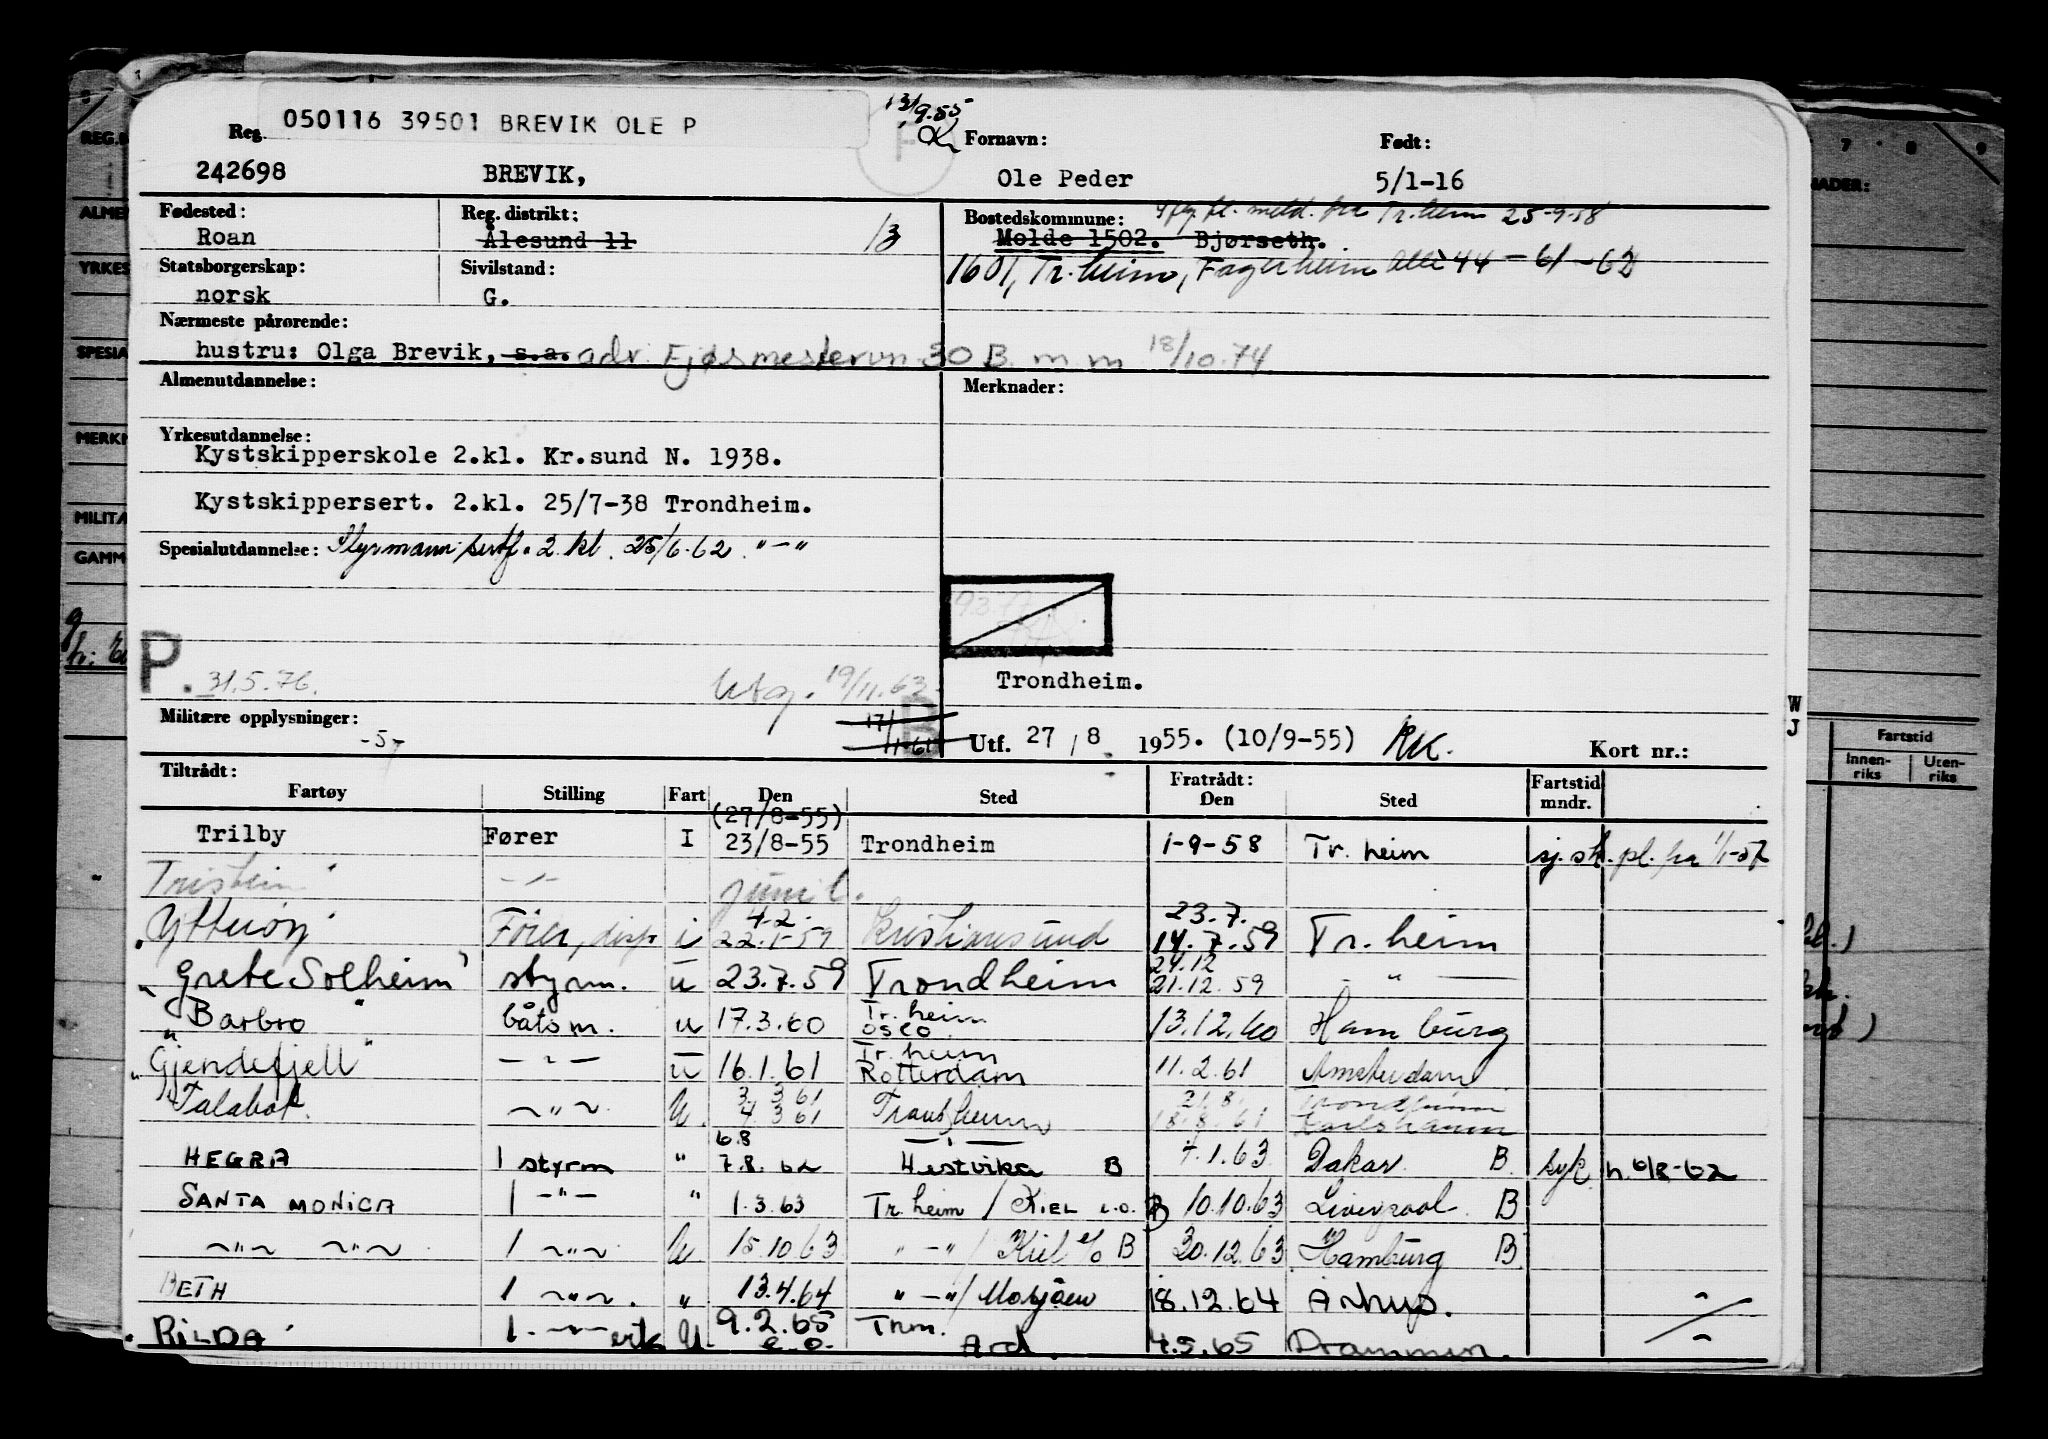 13/9.55
050116 39501 BREVIK OLE P
Reg. Fornavn: Født:
242698 BREVIK, Ole Peder 5/1-16
Fødested: Reg. distrikt: Bostedskommune: flg. fl. meld. fra Tr.heim 25-9-58
Roan Ålesund 11 13 Molde 1502. Bjørseth.
Statsborgerskap: Sivilstand: 1601, Tr.heim, Fagerheim Alle 44 - 61 - 62
norsk G.
Nærmeste pårørende:
hustru: Olga Brevik, s.a. adr. Fjøsmestervn. 30 B. m m 18/10.74
Almenutdannelse: Merknader:
Yrkesutdannelse:
Kystskipperskole 2.kl. Kr.sund N. 1938.
Kystskippersert. 2.kl. 25/7-38 Trondheim.
Spesialutdannelse: Styrmann sertf. 2 kl. 25/6.62 "-"
P. 31.5.76. Utg. 19/11.63
Trondheim.
Militære opplysninger: 17/11-61 B
-5- Utf. 27/8 1955. (10/9-55) RK. Kort nr.:
W
J
Tiltrådt: Fratrådt: Fartstid
Fartøy Stilling Fart Den Sted Den Sted mndr.
(27/8-55)
Trilby Fører I 23/8-55 Trondheim 1-9-58 Tr. heim sj.sk. pl. fra 1/1-57
Tristein -"-
4.2. 23.7.
"Ytterøy" Fører, disp i 22.1-59 Kristiansund 14.7.59 Tr. heim
24.12
"Grete Solheim" styrm. u 23.7.59 Trondheim 21.12.59 - " -
Tr. heim
"Barbro" båtsm. u 17.3.60 Oslo 13.12.60 Hamburg
Tr. heim
"Gjendefjell" -"- u 16.1.61 Rotterdam 11.2.61 Amsterdam
3 3 61 21.8. Trondheim
"Talabot" ~"~ U. 4 3 61 Trondheim 18.8.61 Karlshamn
6.8 -"-
HEGRA 1 styrm " 7.8.62 Hestvika B 7.1.63 Dakar B. syk n. 6/8-62
SANTA MONICA 1 -"- " 1.3.63 Tr.heim / KIEL e.o. B 10.10.63 Liverpool B
~"~ ~"~ 1 ~"~ U 15.10.63 "-"/ Kiel e/o B 30.12.63 Hamburg B
BETH 1 ~"~. " 13.4.64 "-"/ Mosjøen 18.12.64 Århus.
RILDA 1 -"- U. 9.2.65 Trm. 4.5.65 Drammen.
e.o. Ard.
REG.
ALMEN
YRKES
SPESIA
MERKN
MILITÆ
GAMM
7 8 9
NADER:
Fartstid
Innen-
riks
Uten-
riks